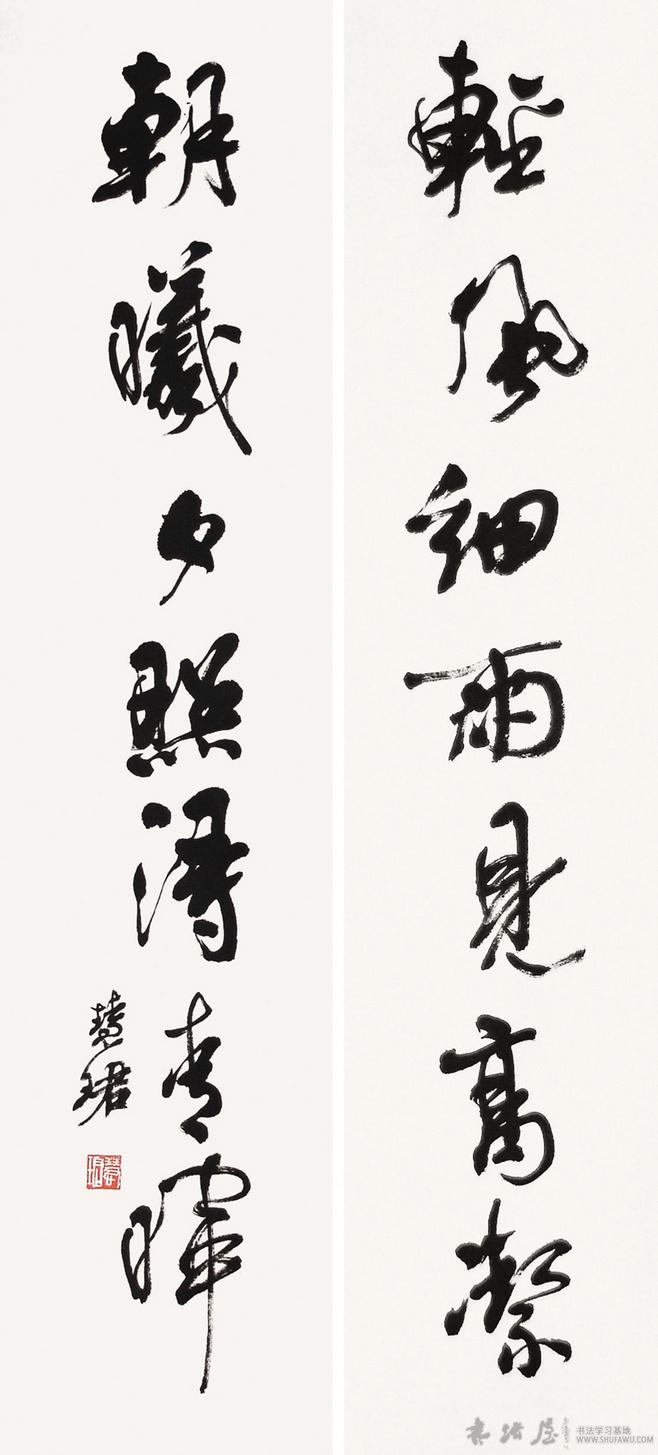 輕風細雨見高潔
朝曦夕照得青暉
慧珺
慧珺
書法屋
书法学习基地
WWW.SHUFAWU.COM